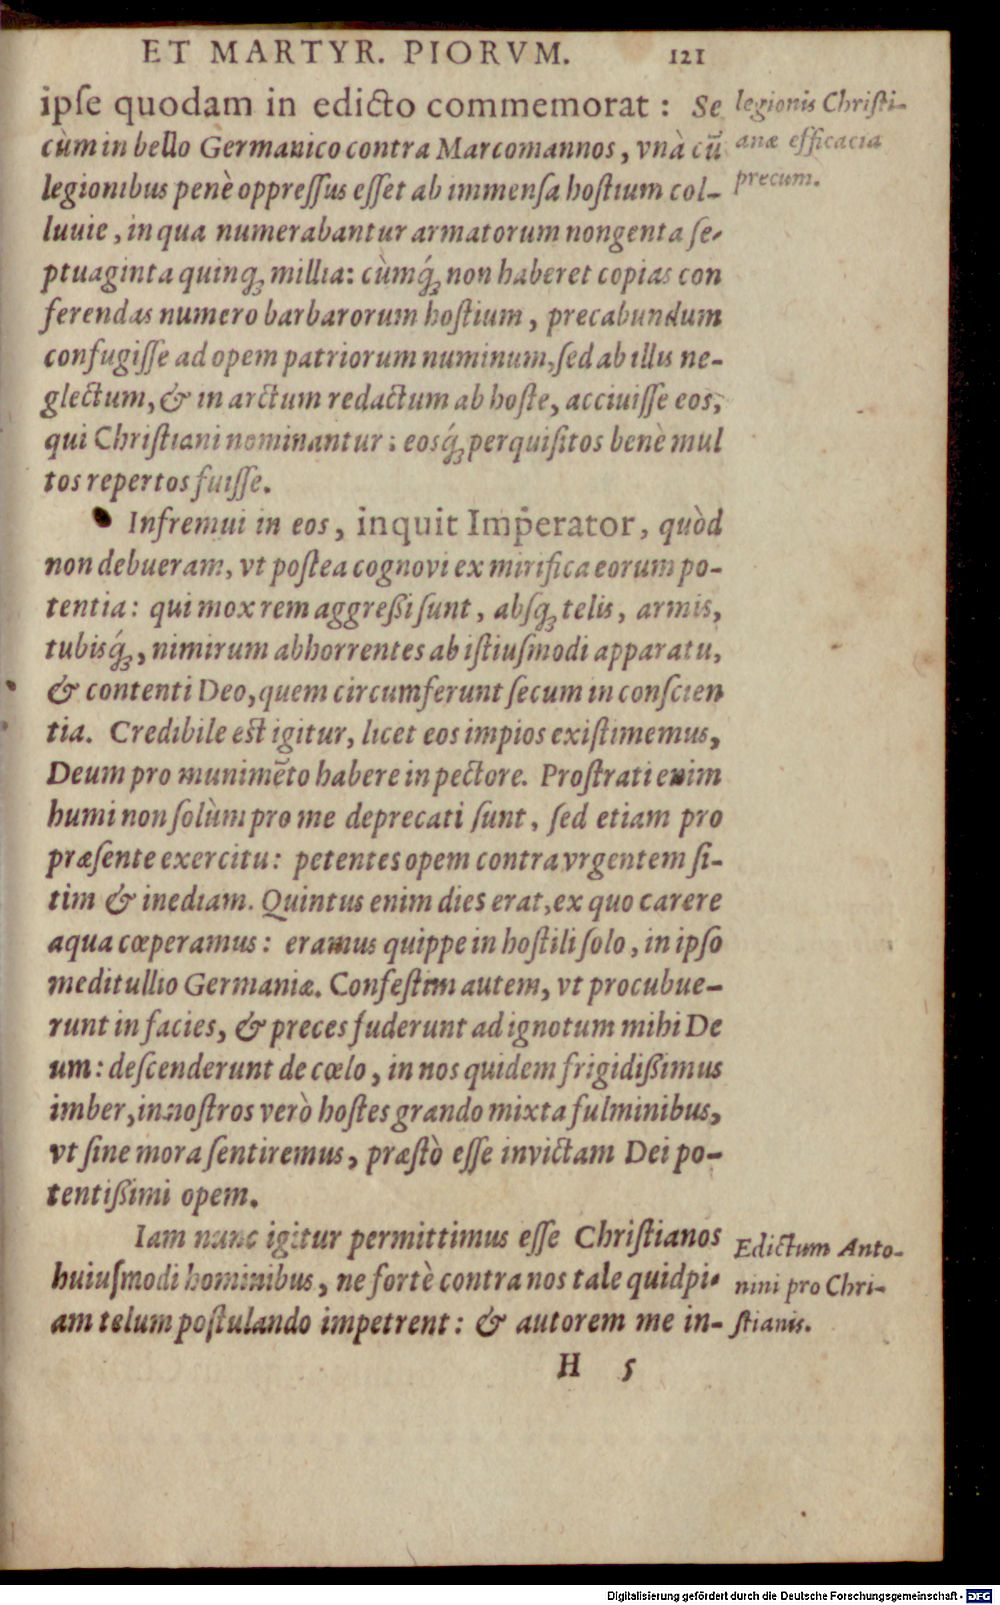 ET MARTYR. PIORVM. 121
ipſe quodam in edicto commemorat : Se
cùm in bello Germanico contra Marcomannos, vnà cū
legionibus penè oppreſſus eſſet ab immenſa hoſtium col-
luuie, in qua numerabantur armatorum nongenta ſe-
ptuaginta quinq́; millia: cùmq́; non haberet copias con
ferendas numero barbarorum hoſtium, precabundum
confugiſſe ad opem patriorum numinum, ſed ab illis ne-
glectum, & in arctum redactum ab hoſte, acciuiſſe eos,
qui Chriſtiani nominantur: eosq́; perquiſitos benè mul
tos repertos fuiſſe.
Infremui in eos, inquit Imperator, quòd
non debueram, vt poſtea cognovi ex mirifica eorum po-
tentia: qui mox rem aggreßi ſunt, absq; telis, armis,
tubisq́;, nimirum abhorrentes ab iſtiuſmodi apparatu,
& contenti Deo, quem circumferunt ſecum in conſcien
tia. Credibile eſt igitur, licet eos impios exiſtimemus,
Deum pro munimēto habere in pectore. Proſtrati enim
humi non ſolùm pro me deprecati ſunt, ſed etiam pro
præſente exercitu: petentes opem contra vrgentem ſi-
tim & inediam. Quintus enim dies erat, ex quo carere
aqua cœperamus: eramus quippe in hoſtili ſolo, in ipſo
meditullio Germaniæ. Confeſtim autem, vt procubue-
runt in facies, & preces fuderunt ad ignotum mihi De
um: deſcenderunt de cœlo, in nos quidem frigidißimus
imber, in noſtros verò hoſtes grando mixta fulminibus,
vt ſine mora ſentiremus, præſtò eſſe invictam Dei po-
tentißimi opem.
Iam nunc igitur permittimus eſſe Chriſtianos
huiuſmodi hominibus, ne fortè contra nos tale quidpi-
am telum poſtulando impetrent: & autorem me in-
H 5
legionis Chriſti-
anæ efficacia
precum.
Edictum Anto-
nini pro Chri-
ſtianis.
Digitalisierung gefördert durch die Deutsche Forschungsgemeinschaft - DFG